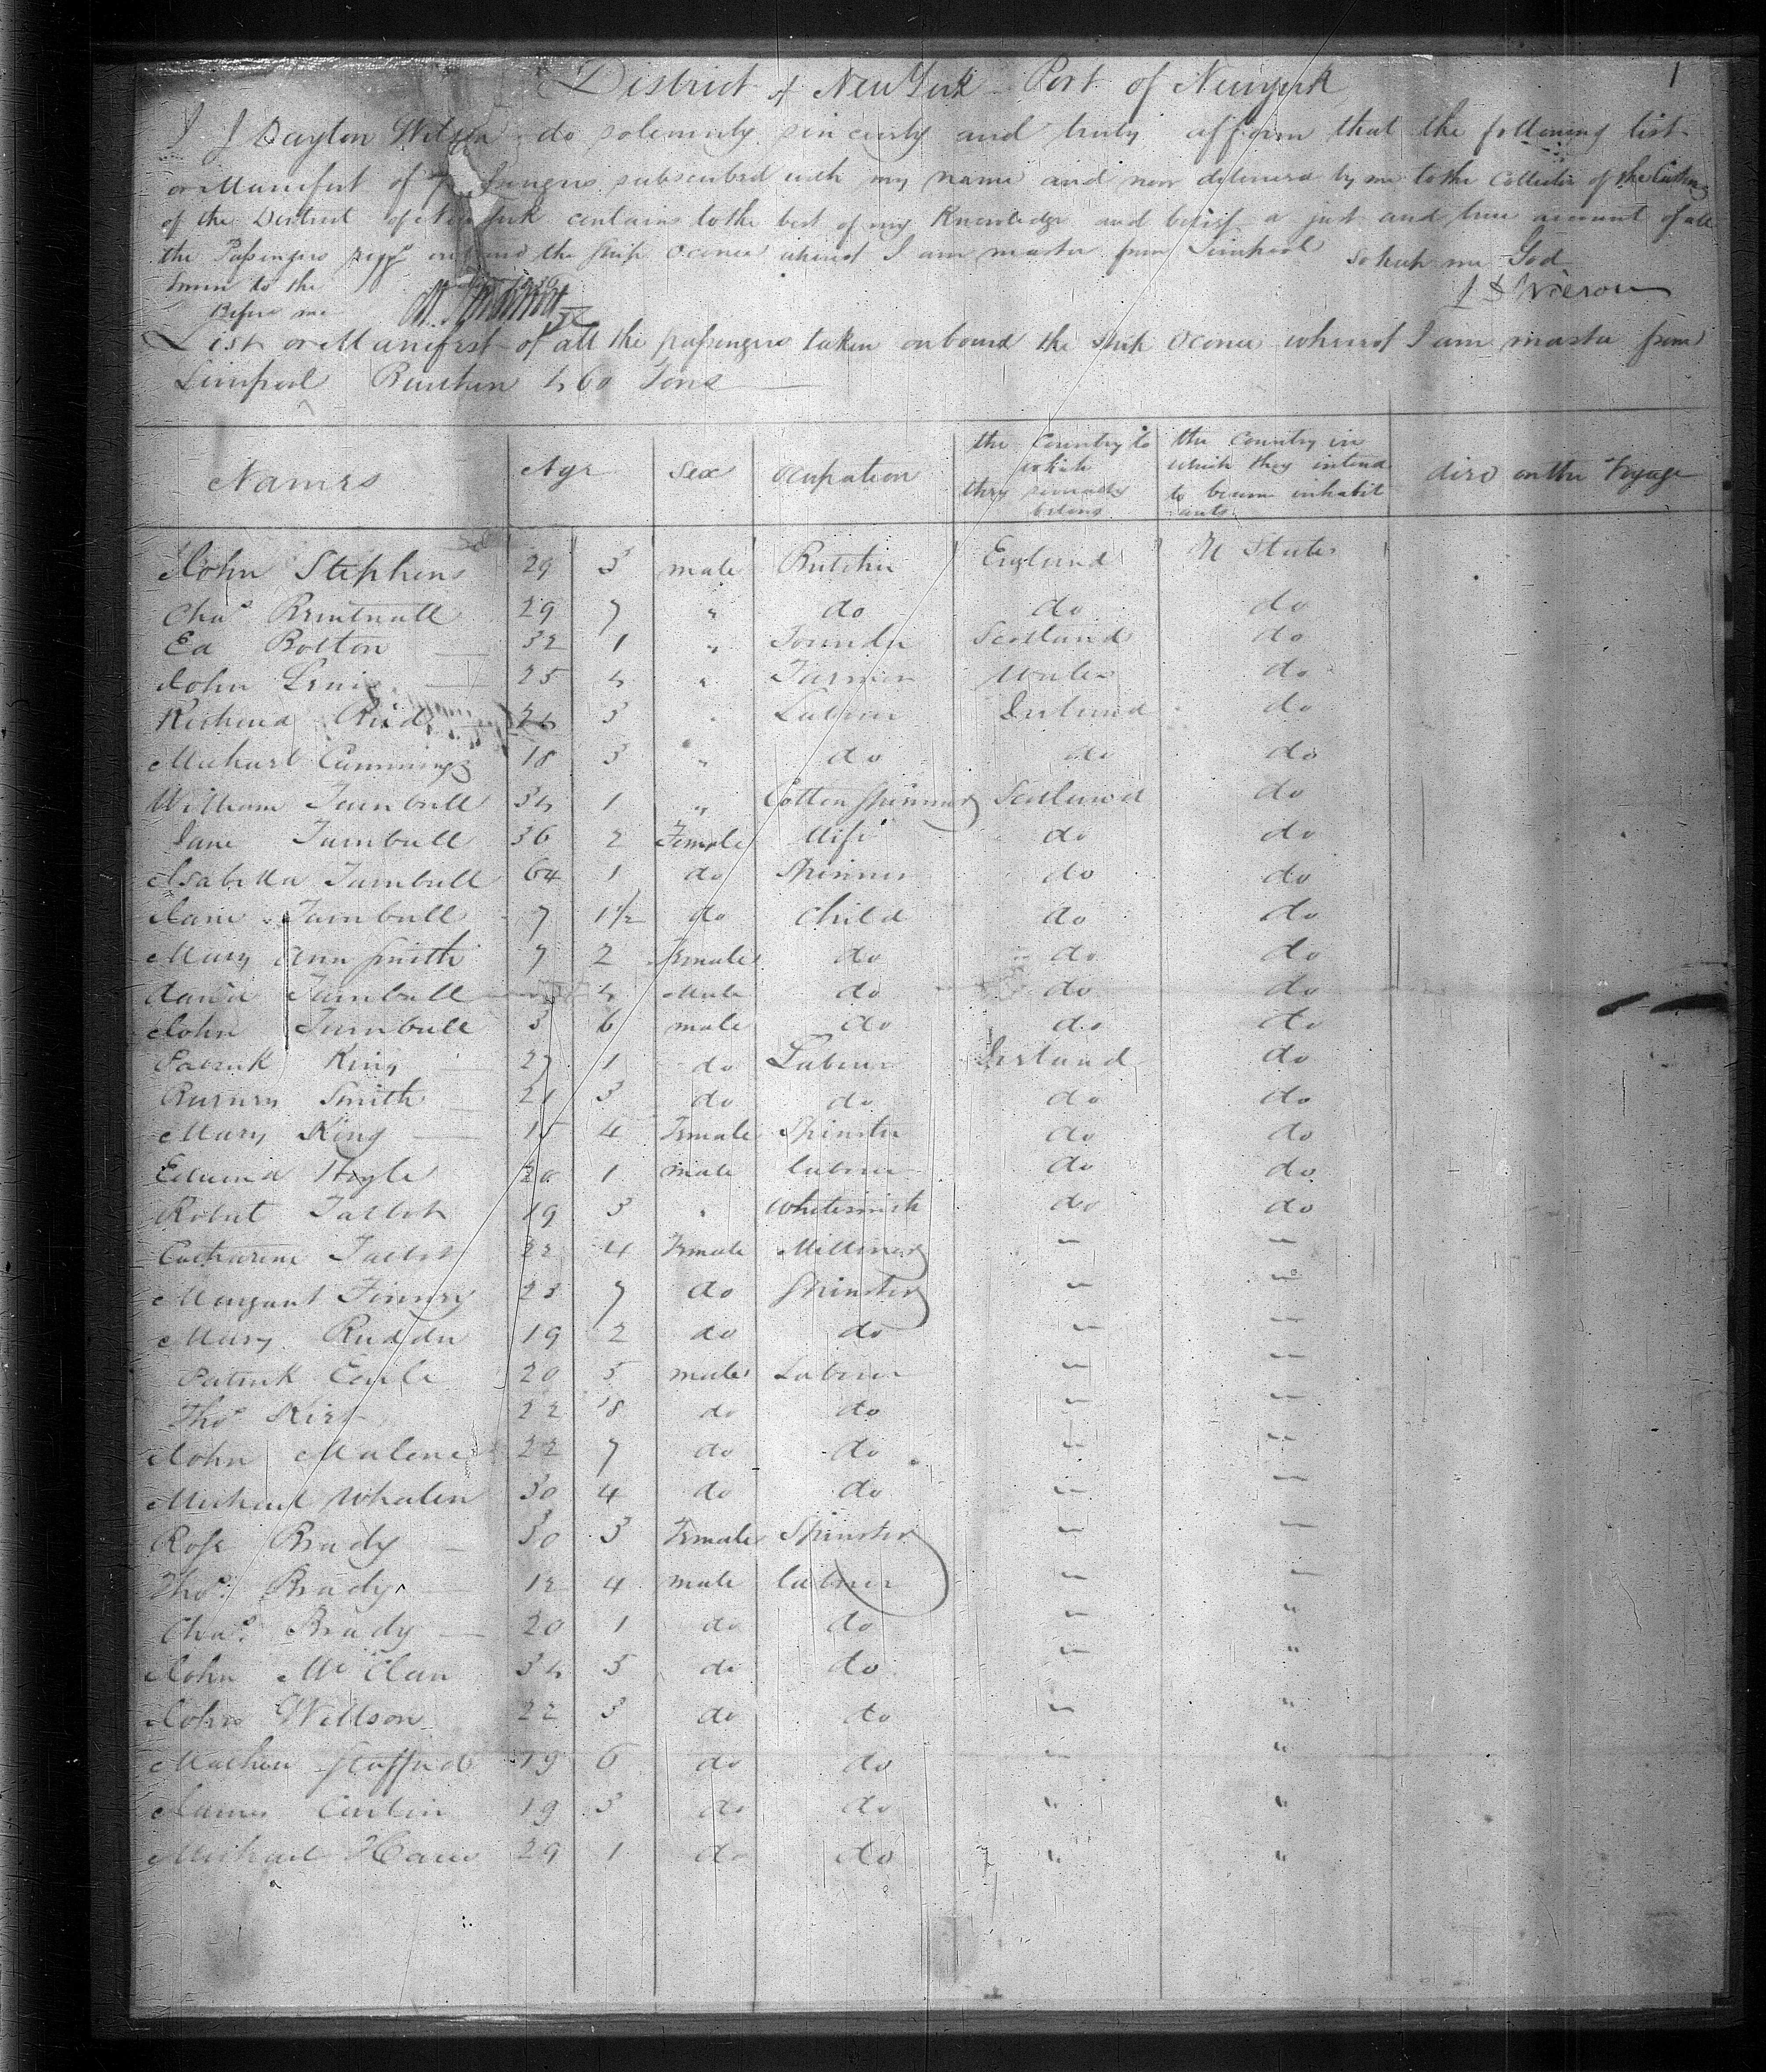 District of New York Port of Newyork 1
I J Dayton Wilson do solemnly sincerly and truly affirm that the following list
or Manifest of Passengers subscribed with my name and now delivered by me to the Collector of the Customs
of the District of New York contains to the best of my Knowledge and belief a just and true account of all
the Passengers onboard the ship Oconee whereof I am master from Liverpool So help me God
Sworn to the
Before me
List or Manifest of all the passengers taken onboard the ship Oconee whereof I am master from
Liverpool Burthen 460 Tons
Names Age Sex Ocupation the Country to which they severally belong the Country in which they intend to become inhabitants died on the Voyage
John Stephens 29 3 male Butcher England U States
Chas Brintnall 29 7 " do do do
Ed Bolton 32 1 " Founder Scotland do
John Lewis 25 4 " Farmer Wales do
Richard Reid 24 3 " Labrer Ireland do
Michael Cummings 18 3 " do do do
William Turnbull 34 1 " Cotton Spinner Scotland do
Jane Turnbull 36 2 Female Wife do do
Isabella Turnbull 64 1 do Spinner do do
Jane Turnbull 7 1½ do child do do
Mary Ann Smith 7 2 Female do do do
David Turnbull 4 Male do do do
John Turnbull 3 6 male do do do
Patrick King 27 1 do Labrer Ireland do
Smith 21 3 do do do do
Mary King 15 4 Female Spinster do do
Edward Hoyle 20 1 male labrer do do
Robert Talbot 19 3 " Whitesmith do do
Catharine Talbot 22 4 Female Milliner " "
Margaret 23 7 do Spinster " "
Mary Rudden 19 2 do do " "
Patrick 20 5 male Labrer " "
Thos Kirk 22 8 do do " "
John Malone 22 7 do do " "
Michael Whalen 30 4 do do " "
Rose Brady 30 3 Female Spinster " "
Thos Brady 12 4 male labrer " "
Chas Brady 20 1 do do " "
John McClean 34 5 do do " "
John Willson 22 3 do do " "
Mathew Stafford 19 6 do do " "
James Carlin 19 3 do do " "
Michael 29 1 do do " "